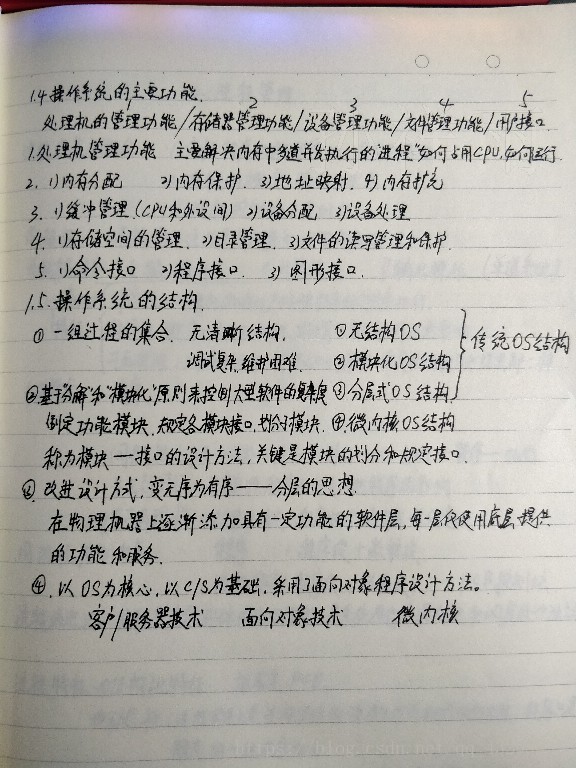 1.4 操作系统的主要功能.
2 3 4 5
处理机的管理功能/存储器管理功能/设备管理功能/文件管理功能/用户接口.
1.处理机管理功能 主要解决内存中多道并发执行的进程"如何占用CPU,如何运行.
2. 1)内存分配 2)内存保护. 3)地址映射. 4)内存扩充
3. 1)缓冲管理(CPU和外设间) 2)设备分配 3)设备处理
4. 1)存储空间的管理. 2)目录管理. 3)文件的读写管理和保护.
5. 1)命令接口 2)程序接口. 3)图形接口.
1.5.操作系统的结构.
① 一组过程的集合. 无清晰结构. ①无结构OS
调试复杂,维护困难. ②模块化OS结构 传统OS结构
②基于"分解"和"模块化"原则来控制大型软件的复杂度 ③分层式OS结构
制定功能模块.规定各模块接口.划分子模块. ④微内核OS结构
称为模块一接口的设计方法,关键是模块的划分和规定接口.
③. 改进设计方式,变无序为有序——分层的思想.
在物理机器上逐渐添加具有一定功能的软件层,每一层仅使用底层提供
的功能和服务.
④. 以OS为核心,以C/S为基础,采用了面向对象程序设计方法。
客户/服务器技术 面向对象技术 微内核